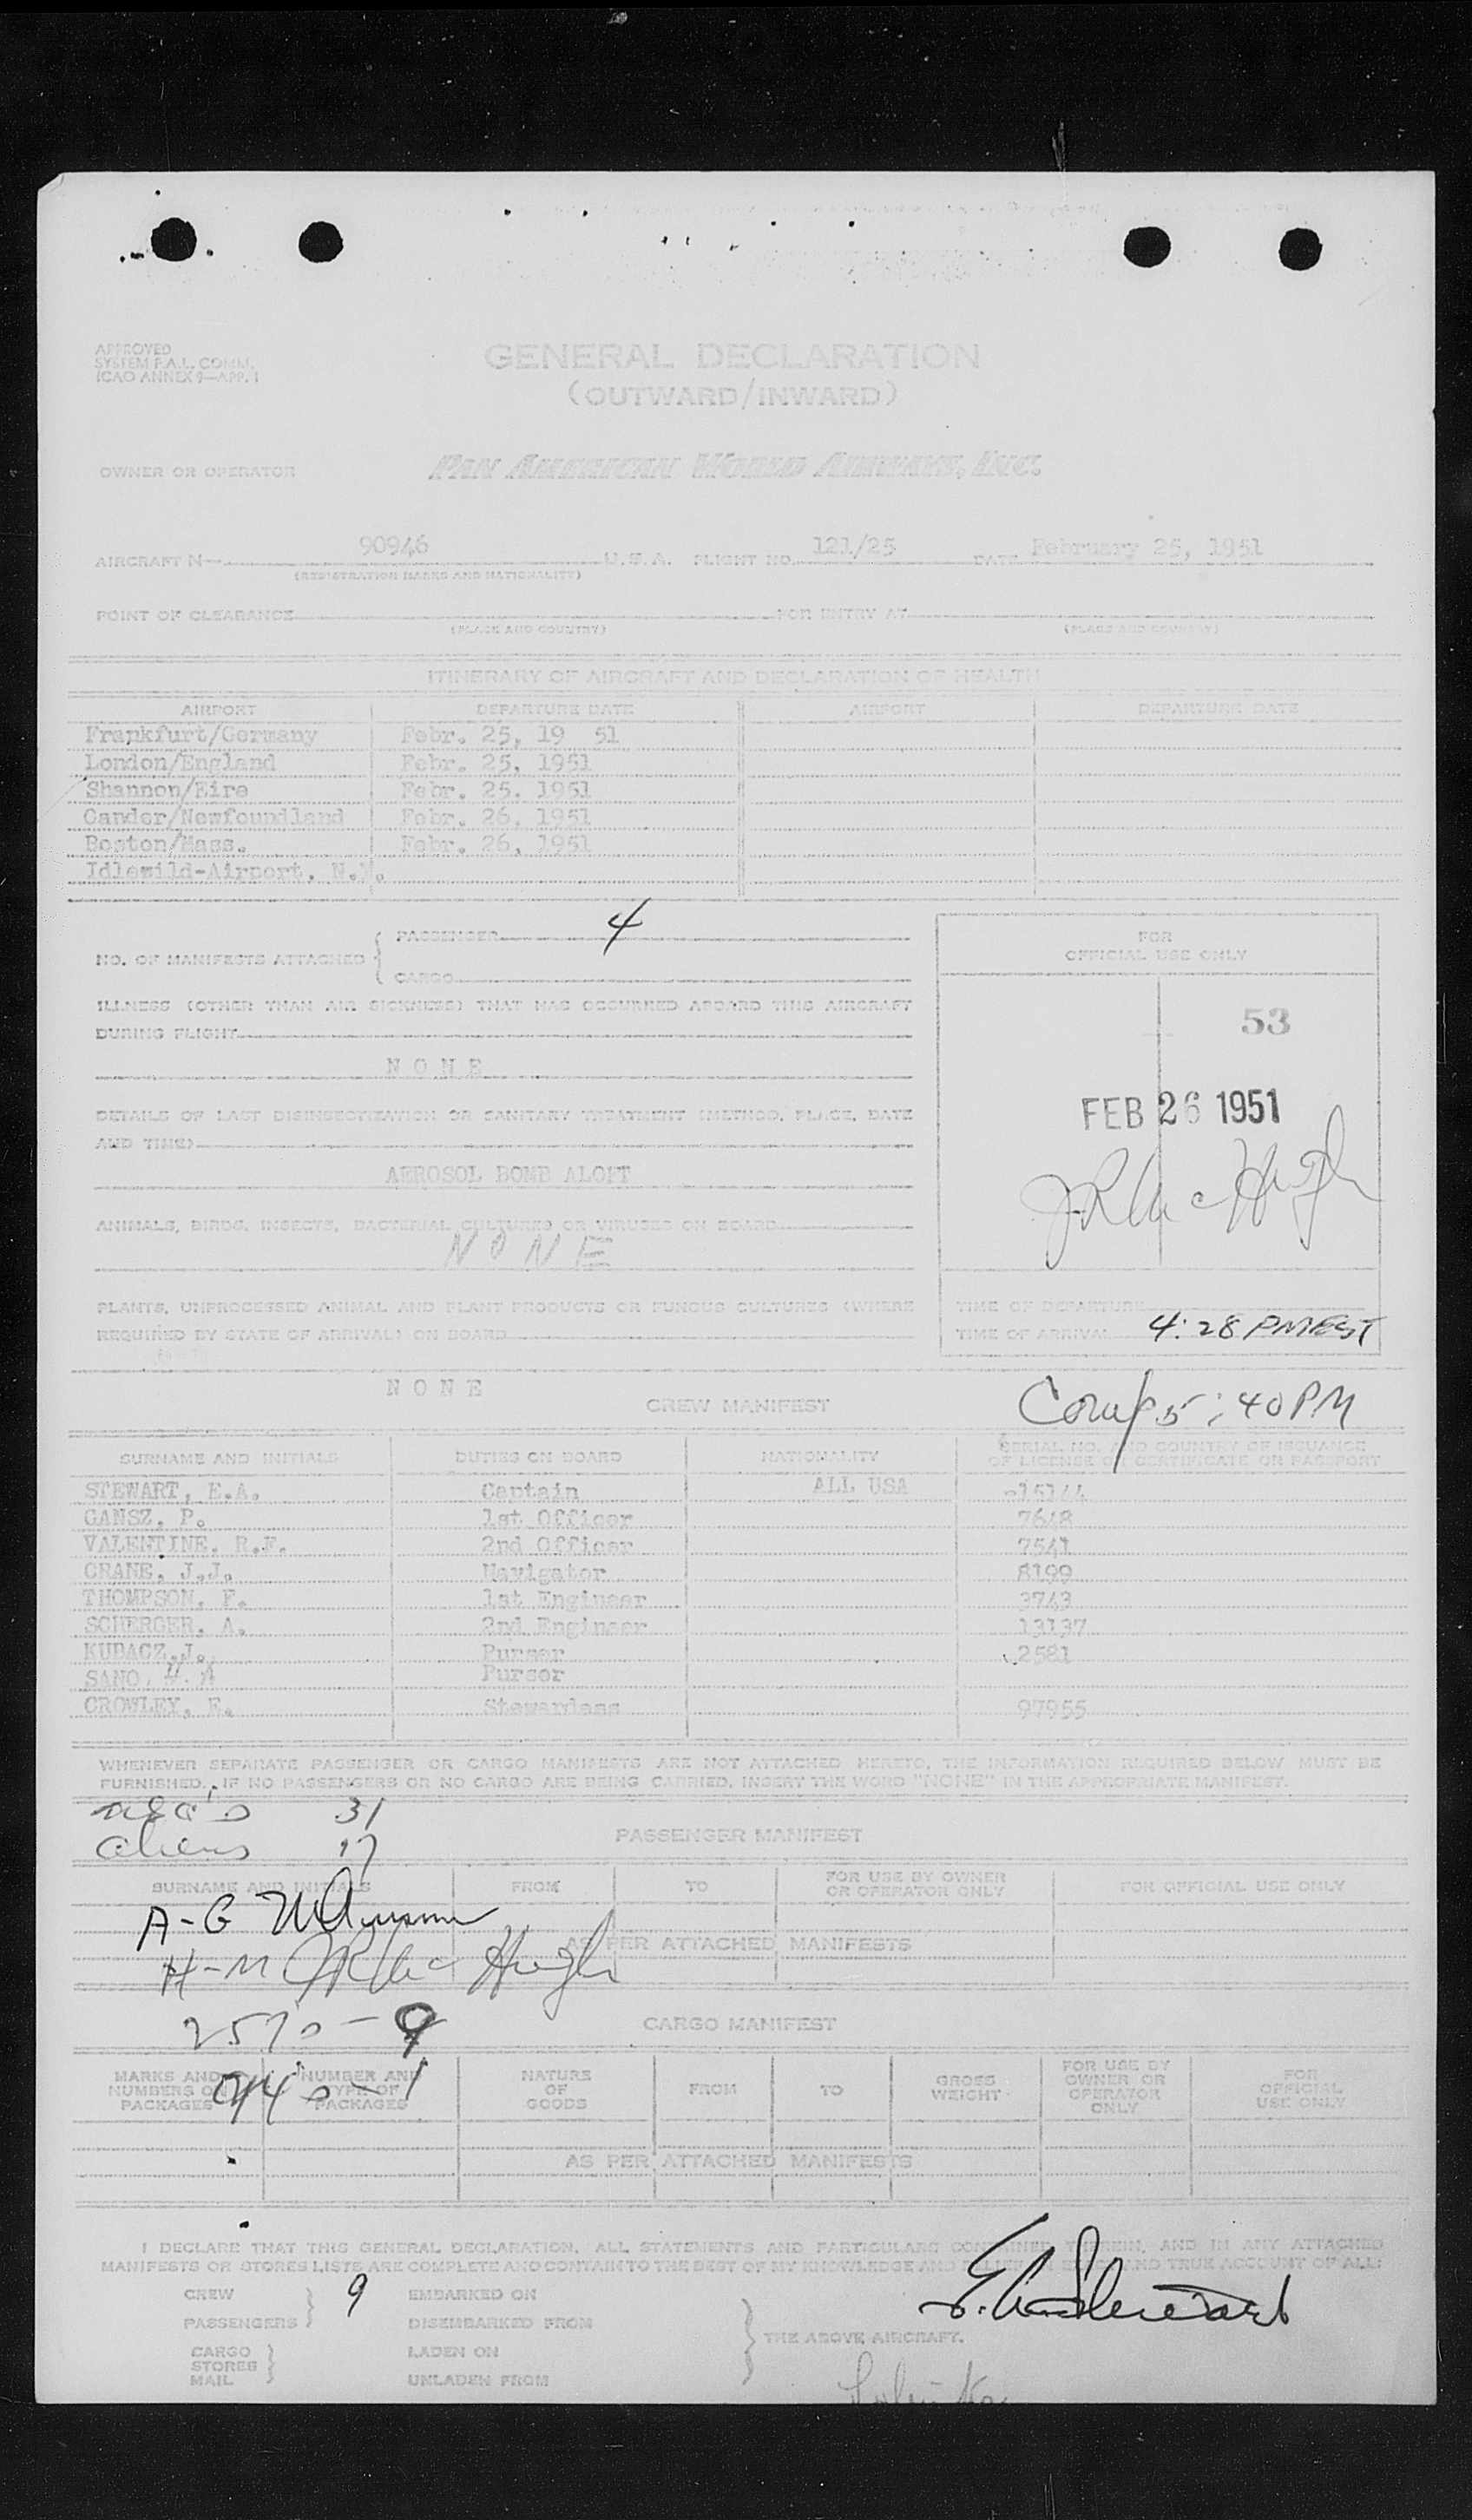 APPROVED
SYSTEM F.A.L. COMM.
(CAO ANNEX 9—APP. 1
GENERAL DECLARATION
(OUTWARD/INWARD)
OWNER OR OPERATOR PAN AMERICAN WORLD AIRWAYS, INC.
AIRCRAFT N— 90946 U.S.A. FLIGHT NO. 121/25 DATE February 25, 1951
(REGISTRATION MARKS AND NATIONALITY)
POINT OF CLEARANCE FOR ENTRY AT
(PLACE AND COUNTRY) (PLACE AND COUNTRY)
ITINERARY OF AIRCRAFT AND DECLARATION OF HEALTH
AIRPORT DEPARTURE DATE AIRPORT DEPARTURE DATE
Frankfurt/Germany Febr. 25, 19 51
London/England Febr. 25, 1951
Shannon/Eire Febr. 25. 1951
Gander/Newfoundland Febr. 26, 1951
Boston/Mass. Febr. 26, 1951
Idlewild-Airport, N.Y.
PASSENGER 4
NO. OF MANIFESTS ATTACHED
CARGO
FOR
OFFICIAL USE ONLY
ILLNESS (OTHER THAN AIR SICKNESS) THAT HAS OCCURRED ABOARD THIS AIRCRAFT
DURING FLIGHT
53
N O N E
DETAILS OF LAST DISINSECTIZATION OR SANITARY TREATMENT (METHOD, PLACE, DATE
AND TIME)
FEB 26 1951
AEROSOL BOMB ALOFT
ANIMALS, BIRDS, INSECTS, BACTERIAL CULTURES OR VIRUSES ON BOARD
N O N E
PLANTS, UNPROCESSED ANIMAL AND PLANT PRODUCTS OR FUNGUS CULTURES (WHERE
REQUIRED BY STATE OF ARRIVAL) ON BOARD
TIME OF DEPARTURE
TIME OF ARRIVAL 4:28 PM EST
N O N E
CREW MANIFEST
Comp 5:40 PM
SURNAME AND INITIALS DUTIES ON BOARD NATIONALITY SERIAL NO. AND COUNTRY OF ISSUANCE
OF LICENSE OR CERTIFICATE OR PASSPORT
STEWART, E.A. Captain ALL USA 15144
GANSZ, P. 1st Officer 7648
VALENTINE, R.F. 2nd Officer 7541
CRANE, J.J. Navigator 8199
THOMPSON, F. 1st Engineer 3743
SCHERGER, A. 2nd Engineer 13137
KUBACZ, J. Purser 2581
SANO, Purser
CROWLEY, E. Stewardess 97955
WHENEVER SEPARATE PASSENGER OR CARGO MANIFESTS ARE NOT ATTACHED HERETO, THE INFORMATION REQUIRED BELOW MUST BE
FURNISHED. IF NO PASSENGERS OR NO CARGO ARE BEING CARRIED, INSERT THE WORD "NONE" IN THE APPROPRIATE MANIFEST.
31
aliens 17
PASSENGER MANIFEST
SURNAME AND INITIALS FROM TO FOR USE BY OWNER
OR OPERATOR ONLY FOR OFFICIAL USE ONLY
A-G
AS PER ATTACHED MANIFESTS
H-M
CARGO MANIFEST
MARKS AND
NUMBERS OF
PACKAGES NUMBER AND
TYPE OF
PACKAGES NATURE
OF
GOODS FROM TO GROSS
WEIGHT FOR USE BY
OWNER OR
OPERATOR
ONLY FOR
OFFICIAL
USE ONLY
AS PER ATTACHED MANIFESTS
I DECLARE THAT THIS GENERAL DECLARATION, ALL STATEMENTS AND PARTICULARS CONTAINED THEREIN, AND IN ANY ATTACHED
MANIFESTS OR STORES LISTS ARE COMPLETE AND CONTAIN TO THE BEST OF MY KNOWLEDGE AND BELIEF AND TRUE ACCOUNT OF ALL:
CREW 9 EMBARKED ON
E. A. Stewart
PASSENGERS DISEMBARKED FROM
THE ABOVE AIRCRAFT.
CARGO LADEN ON
STORES
MAIL UNLADEN FROM